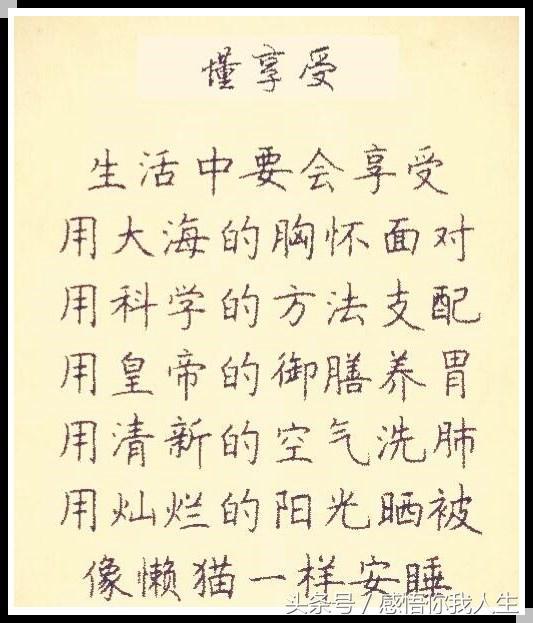 懂享受
生活中要会享受
用大海的胸怀面对
用科学的方法支配
用皇帝的御膳养胃
用清新的空气洗肺
用灿烂的阳光晒被
像懒猫一样安睡
头条号 / 感悟你我人生